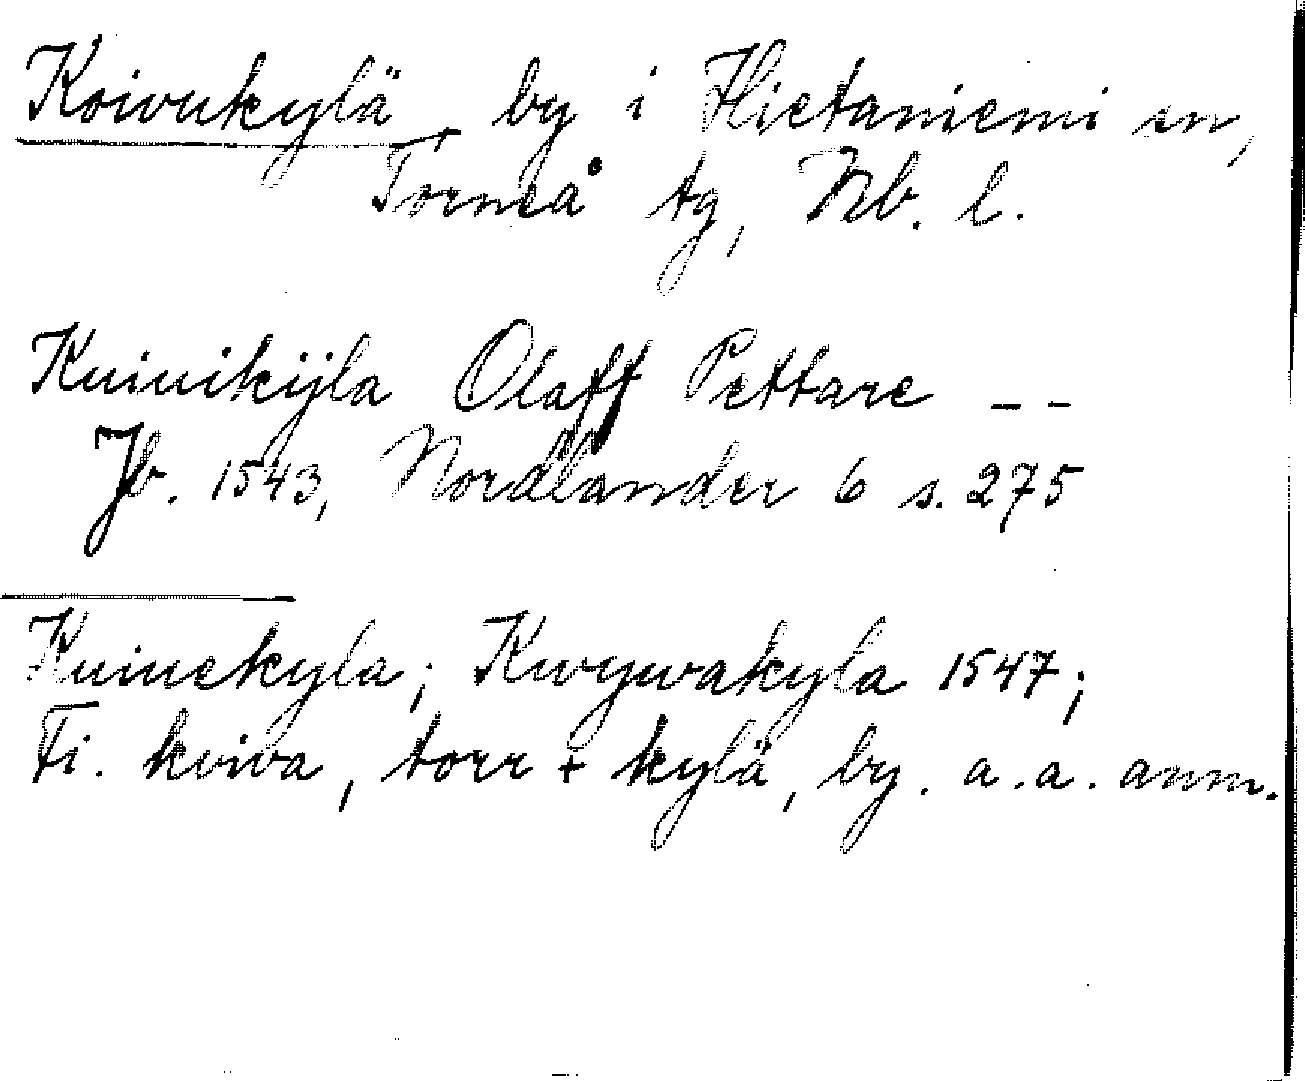 Koivukylä, by i Hietaniemi sn,
Torneå tg, Nb. l.
Kuiuikijla Olaff Pettare – –
Jb. 1543, Nordlander 6 s. 275
Kuiuekyla; Kwywakyla 1547;
Fi. kviva, torr + kylä, by. a.a. anm.